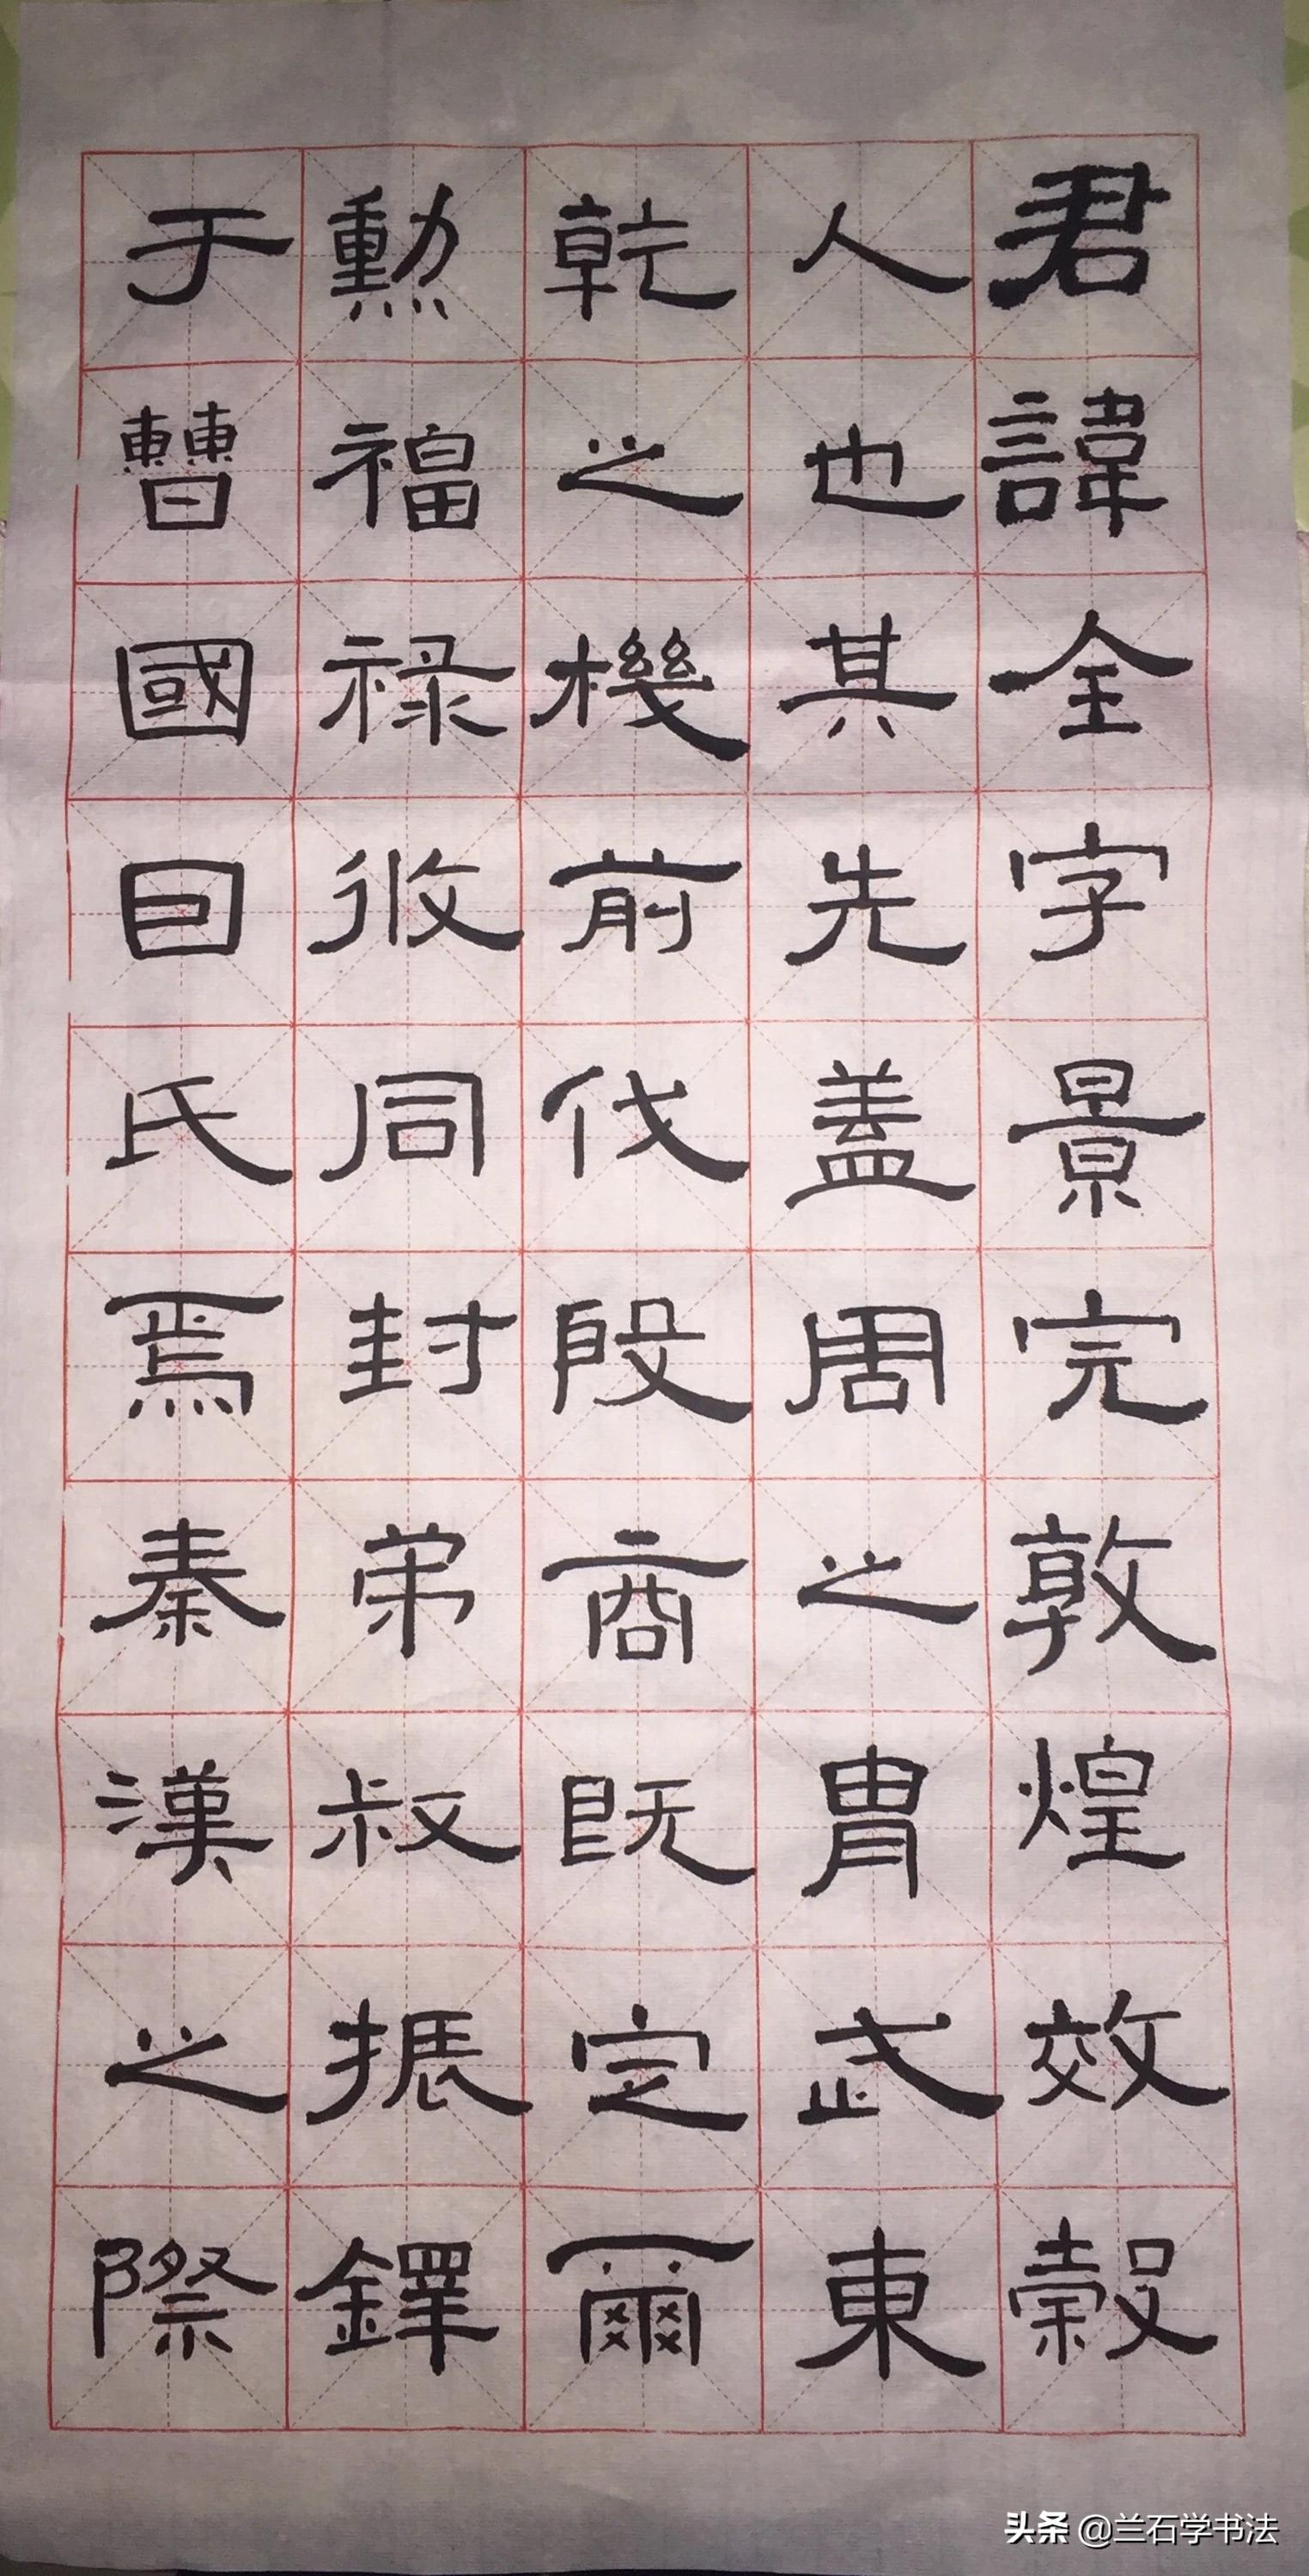 君諱全字景完敦煌效穀
人也其先蓋周之胄武秉
乾之機前伐殷商既定爾
勳福祿攸同封弟叔振鐸
于曹國因氏焉秦漢之際
头条 @兰石学书法